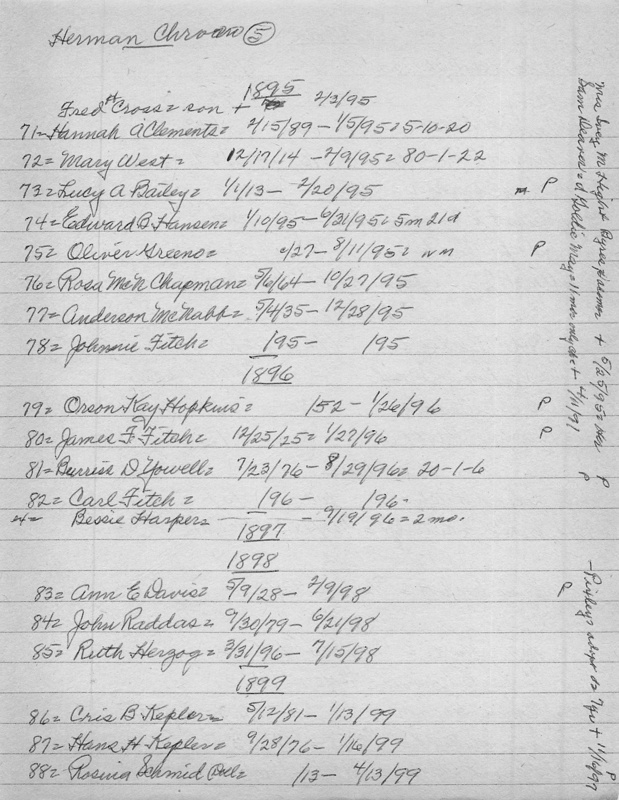 Herman Chrono 5
1895
Fred Cross = son + 2/3/95
71= Hannah A Clements = 2/15/89 - 1/5/95 = 5-10-20
72= Mary West = 12/17/14 - 2/9/95 = 80-1-22
73= Lucy A Bailey = 1/1/13 - 2/20/95 P
74= Edward B Hansen = 1/10/95 - 6/31/95 = 5m 21d
75= Oliver Greeno = /27 - 8/11/95 = P
76= Rosa McN Chapman = 5/6/64 - 10/27/95
77= Anderson McNabb = 5/4/35 - 12/28/95
78= Johnnie Fitch = 195 - 195
1896
79= Orson Kay Hopkins = /52 - 1/26/96 P
80= James F Fitch = 12/25/25 = 1/27/96 P
81= Burriss D Yowell = 7/23/76 - 8/29/96 = 20-1-6 P
82= Carl Fitch = 196 - 196
Bessie Harper - 9/19/96 = 2 mo.
1897
1898
83= Ann E Davis = 5/9/28 - 2/9/98 P
84= John Raddas = 9/30/79 - 6/21/98
85= Ruth Herzog = 3/31/96 - 7/15/98
1899
86= Cris B Kepler = 5/12/81 - 1/13/99
87= Hans H Kepler = 9/28/76 - 1/16/99
88= Rosina Schmid = /13 - 4/13/99
Mrs McKnight + 5/25/95 = P
Sam = d Goldie May = 11 mo + 4/11/97
+ 11/16/97 P